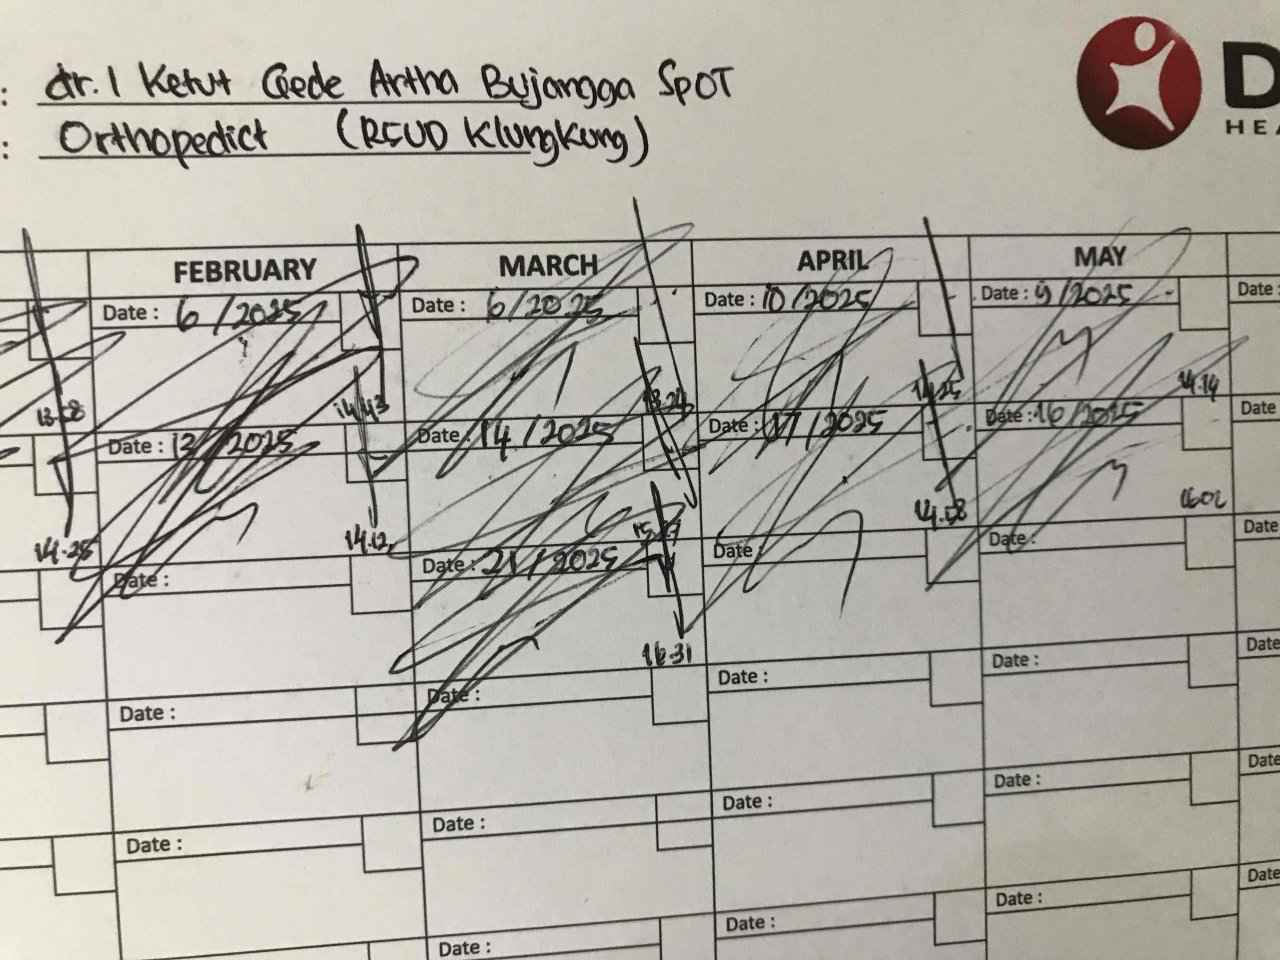 : dr. I Ketut Gede Artha Bujangga SpOT
: Orthopedict (RSUD Klungkung)
D
HEA
FEBRUARY MARCH APRIL MAY
Date : 6 /2025 Date : 6/2025 Date : 10/2025 Date : 9/2025 Date :
13.28 14.43 13.24 14.25 14.14
Date : 13/2025 Date : 14/2025 Date : 17/2025 Date : 16/2025 Date
14.25 14.12 14.08 16.02
Date : Date : 21/2025 Date : Date : Date
16.31
Date : Date : Date : Date : Date
Date : Date : Date : Date : Date
Date : Date : Date : Date